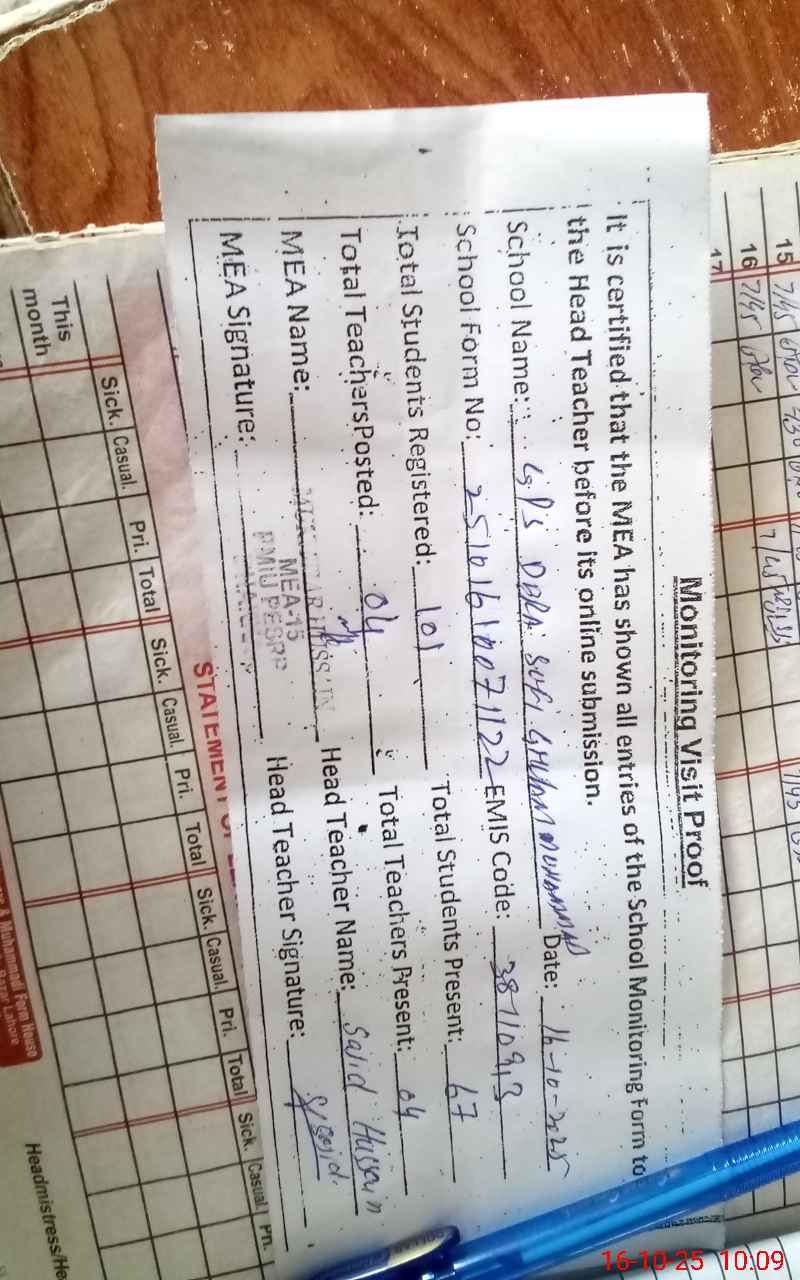 Monitoring Visit Proof
It is certified that the MEA has shown all entries of the School Monitoring Form to
the Head Teacher before its online submission.
School Name: GPS DERA SUFI GHULAM MUHAMMAD Date: 16-10-2025
School Form No: 25101610071122 EMIS Code: 38110913
Total Students Registered: 101 Total Students Present: 67
Total Teachers Posted: 04 Total Teachers Present: 04
MEA Name: Head Teacher Name: Sajid Hussain
MEA-15
PMIU PESRP
MEA Signature: Head Teacher Signature: Sajid
15 7/45
16 7/45
17
STATEMENT OF
Sick. Casual. Pri. Total Sick. Casual. Pri. Total Sick. Casual. Pri. Total Sick. Casual. Pri.
This
month
& Muhammadi Form House
Lahore
Headmistress/He
16-10-25 10:09